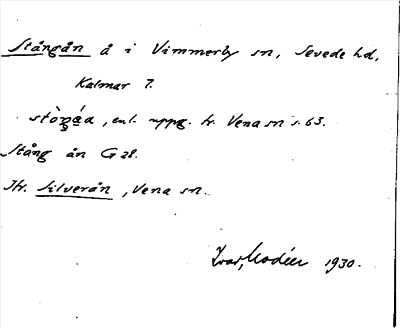 Stångån å i Vimmerby sn, Sevede hd,
Kalmar l.
enl. uppg. fr. Vena sn s. 63.
Stång ån G 28.
Jfr. Silverån, Vena sn.
Ivar Modéer 1930.